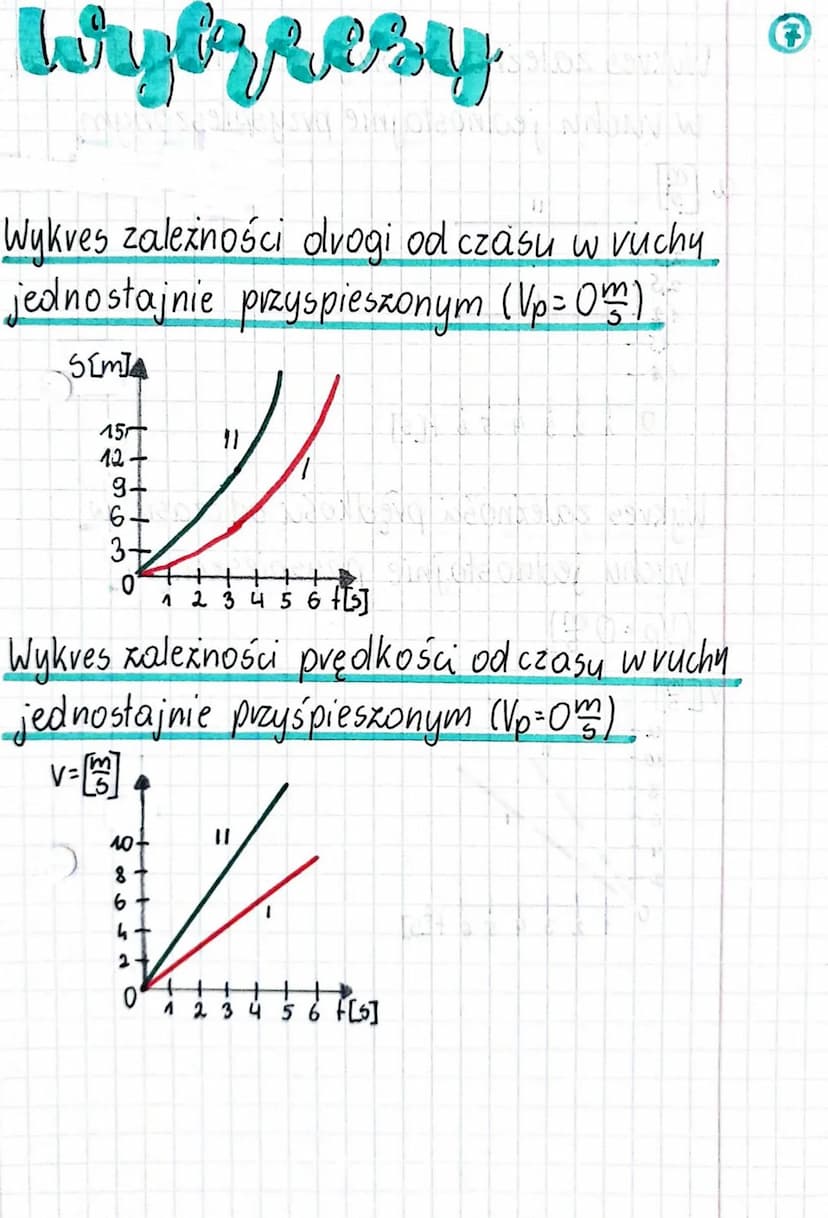 Wykresy
7
Wykres zależności drogi od czasu w ruchu
jednostajnie przyspieszonym (Vp = 0 m/s)
S[m]
15
12
9
6
3
0
II
I
1 2 3 4 5 6 t[s]
Wykres zależności prędkości od czasu w ruchu
jednostajnie przyśpieszonym (Vp = 0 m/s)
V=[m/s]
10
8
6
4
2
0
II
I
1 2 3 4 5 6 t[s]